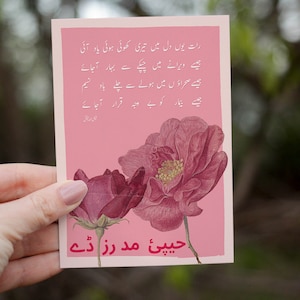 رات یوں دل میں تیری کھوئی ہوئی یاد آئی
جیسے ویرانے میں چپکے سے بہار آجائے
جیسے صحراؤں میں ہولے سے چلے باد نسیم
جیسے بیمار کو بے وجہ قرار آجائے
حیپئ مدرز ڈے